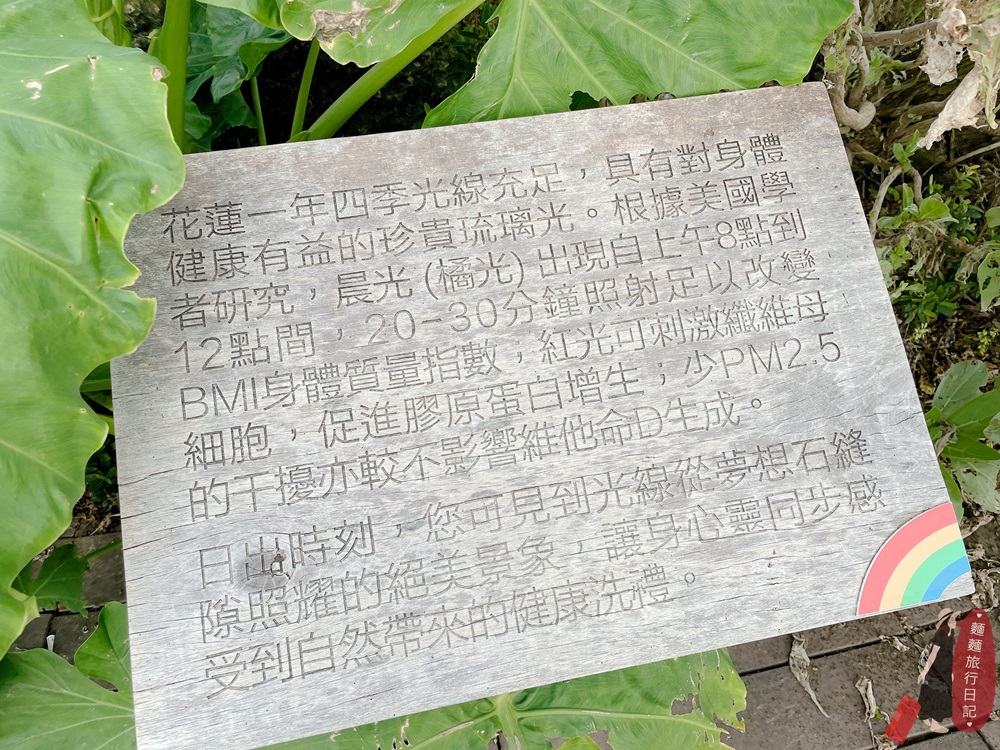 花蓮一年四季光線充足，具有對身體
健康有益的珍貴琉璃光。根據美國學
者研究，晨光(橘光)出現自上午8點到
12點間，20-30分鐘照射足以改變
BMI身體質量指數，紅光可刺激纖維母
細胞，促進膠原蛋白增生；少PM2.5
的干擾亦較不影響維他命D生成。
日出時刻，您可見到光線從夢想石縫
隙照耀的絕美景象，讓身心靈同步感
受到自然帶來的健康洗禮。
麵麵旅行日記